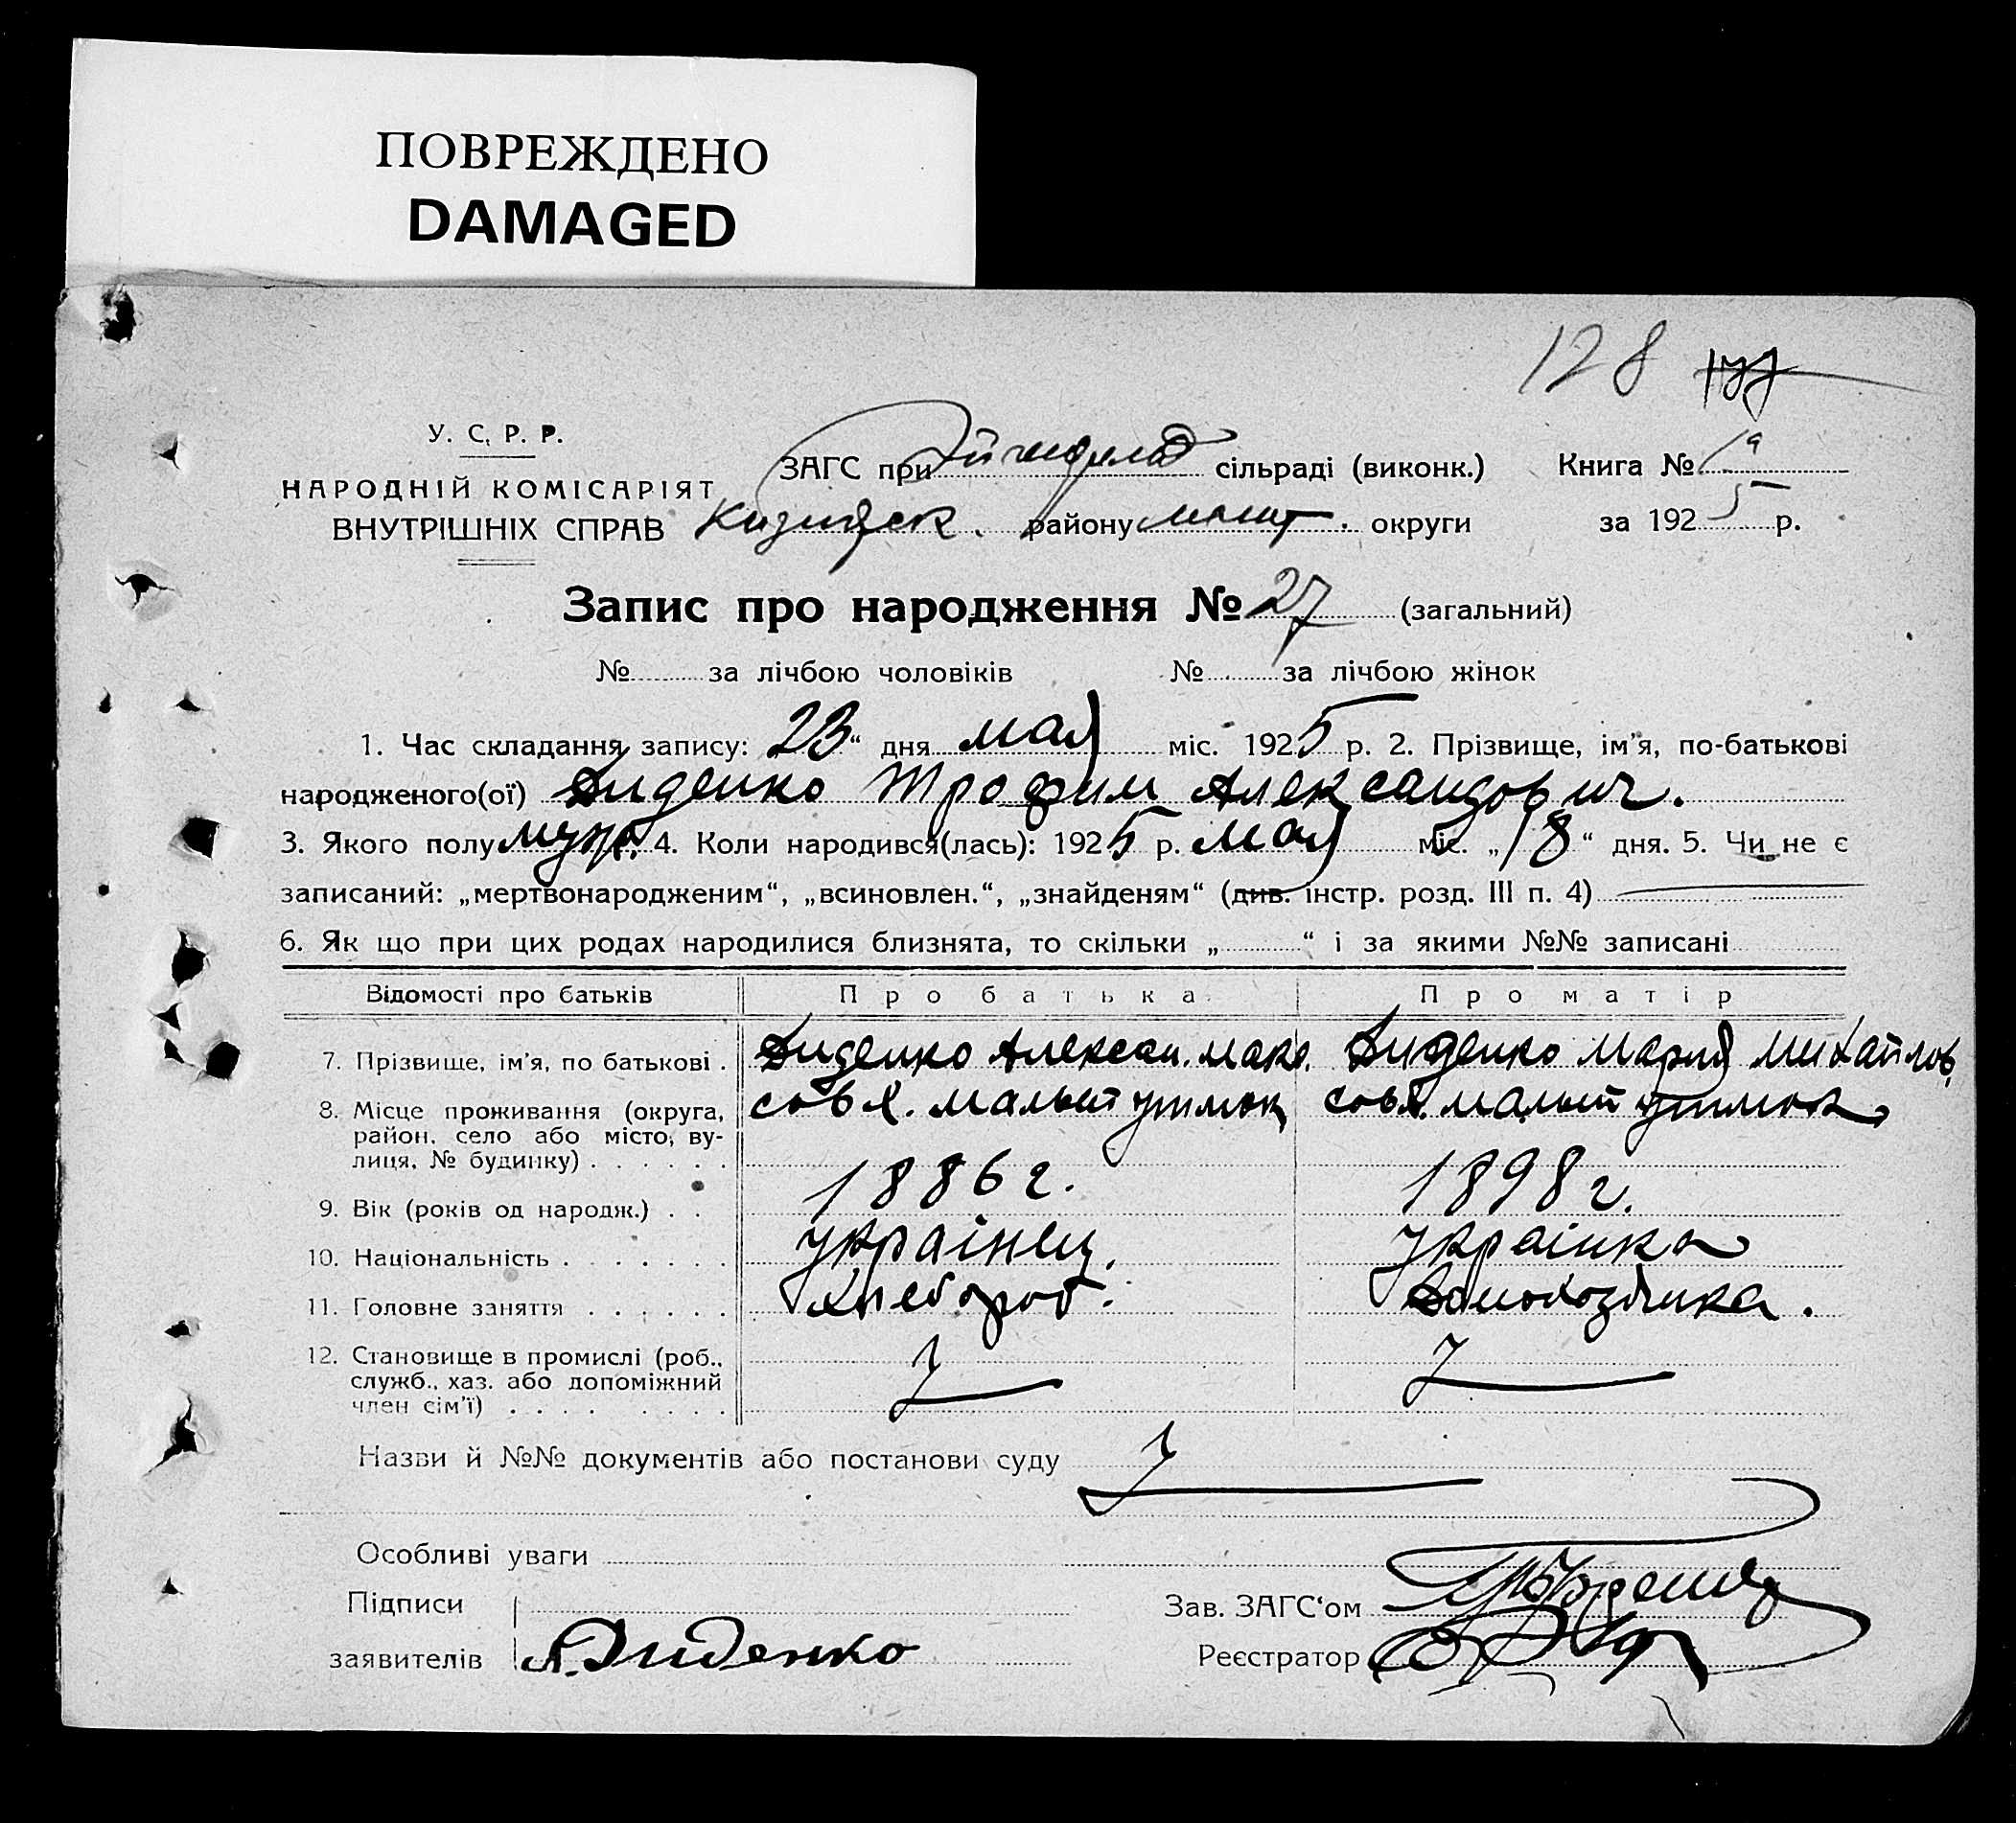 ПОВРЕЖДЕНО
DAMAGED
128 177
У. С. Р. Р.
НАРОДНІЙ КОМІСАРІЯТ
ВНУТРІШНІХ СПРАВ
ЗАГС при сільраді (виконк.) Книга № 1а
району округи за 1925 р.
Запис про народження № 27 (загальний)
№ за лічбою чоловіків № за лічбою жінок
1. Час складання запису: 23“ дня мая міс. 1925 р. 2. Прізвище, ім’я, по-батькові
народженого(ої) Диденко Трофим Александович.
3. Якого полу муж. 4. Коли народився(лась): 1925 р. мая міс. „18“ дня. 5. Чи не є
записаний: „мертвонародженим“, „всиновлен.“, „знайденям“ (див. інстр. розд. III п. 4)
6. Як що при цих родах народилися близнята, то скільки „ “ і за якими №№ записані
Відомості про батьків Про батька Про матір
7. Прізвище, ім’я, по батькові . Диденко Алексан. Макс. Диденко Мария Михайлов.
8. Місце проживання (округа, район, село або місто, вулиця, № будинку) . . . . . . малый утлюк малый утлюк
9. Вік (років од народж.) . . 1886 г. 1898 г.
10. Національність . . . . . . . украінец. украінка
11. Головне заняття . . . . . . Хлебороб. Домохозяйка.
12. Становище в промислі (роб., служб., хаз. або допоміжний член сім’ї) . . . .
Назви й №№ документів або постанови суду
Особливі уваги
Підписи
заявителів А. Диденко
Зав. ЗАГС‘ом
Реєстратор